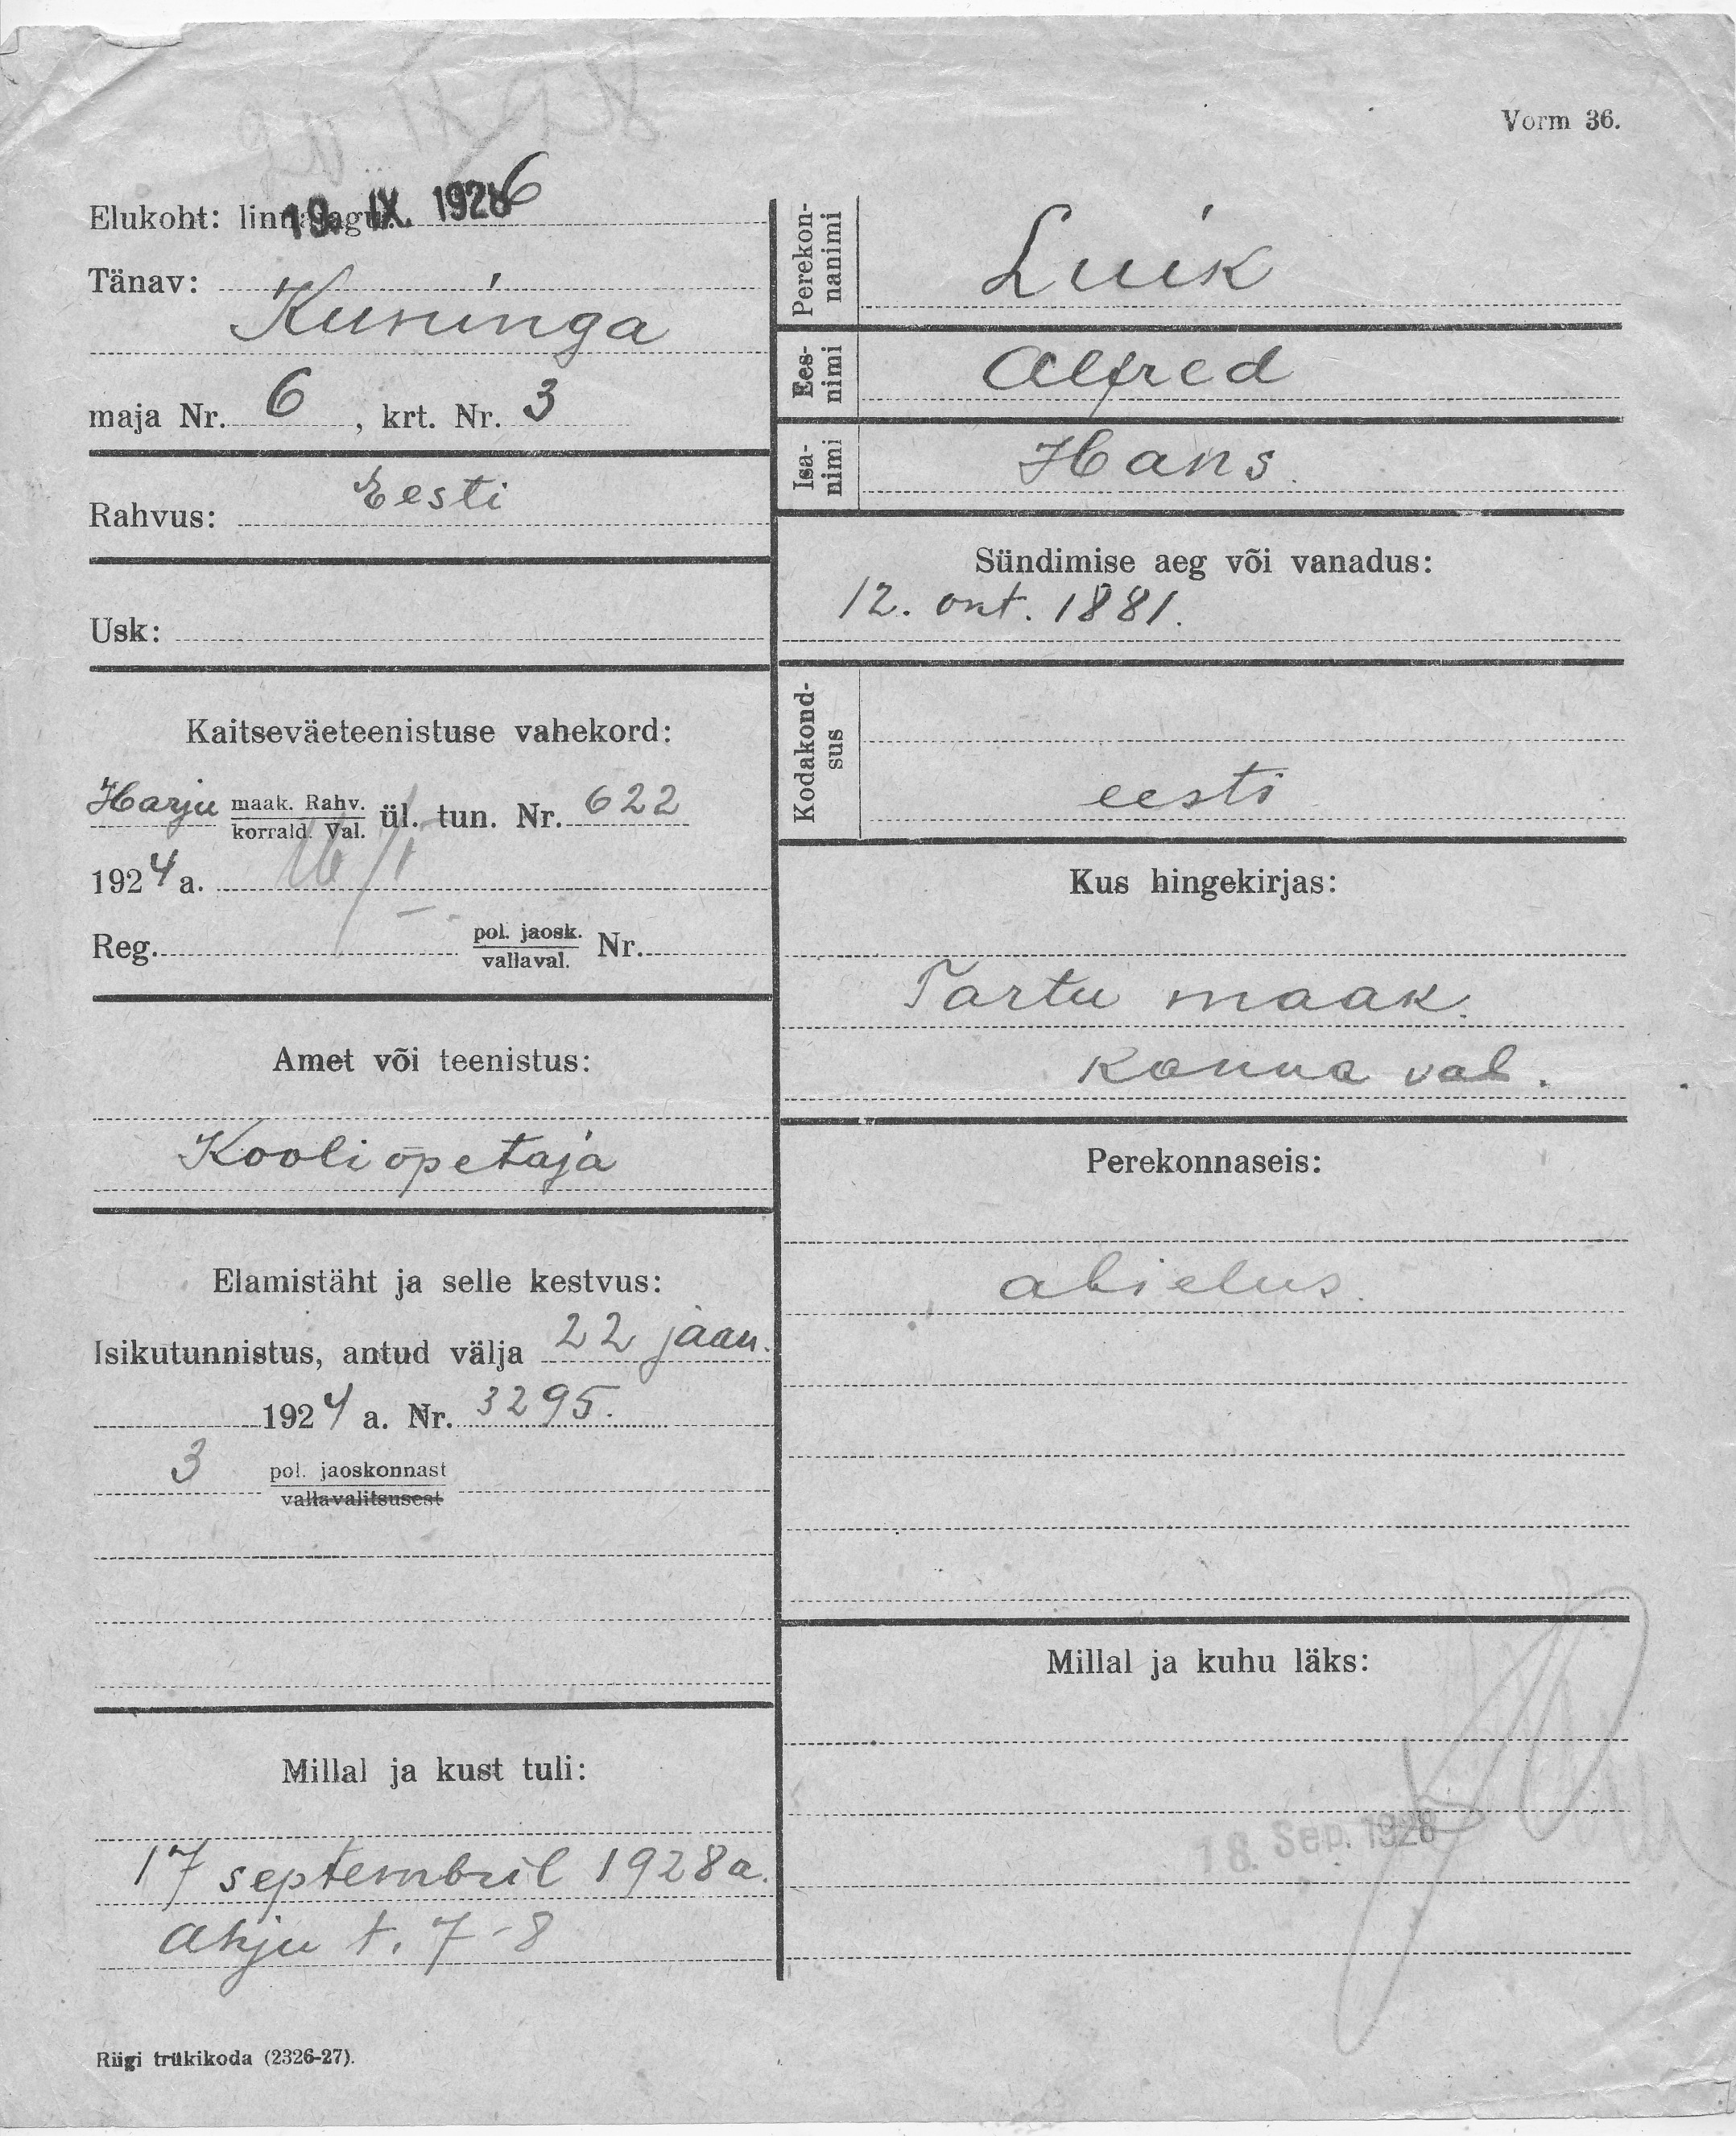 Vorm 36.
Elukoht: linnajagu 6
19. IX. 1928
Tänav:
Kuninga
maja Nr. 6, krt. Nr. 3
Rahvus: Eesti
Usk:
Kaitseväeteenistuse vahekord:
Harju maak. Rahv. korrald. Val. ül. tun. Nr. 622
1924 a.
Reg. pol. jaosk. vallaval. Nr.
Amet või teenistus:
Kooliõpetaja
Elamistäht ja selle kestvus:
Isikutunnistus, antud välja 22 jaan.
1924 a. Nr. 3295.
3 pol. jaoskonnast
vallavalitsusest
Millal ja kust tuli:
17 septembril 1928 a.
Ahju t. 7-8
Riigi trükikoda (2326-27).
Perekon-
nanimi
Luik
Ees-
nimi
Alfred
Isa-
nimi
Hans
Sündimise aeg või vanadus:
12. okt. 1881.
Kodakond-
sus
eesti
Kus hingekirjas:
Tartu maak.
Konna val.
Perekonnaseis:
abielus.
Millal ja kuhu läks:
18. Sep. 1928